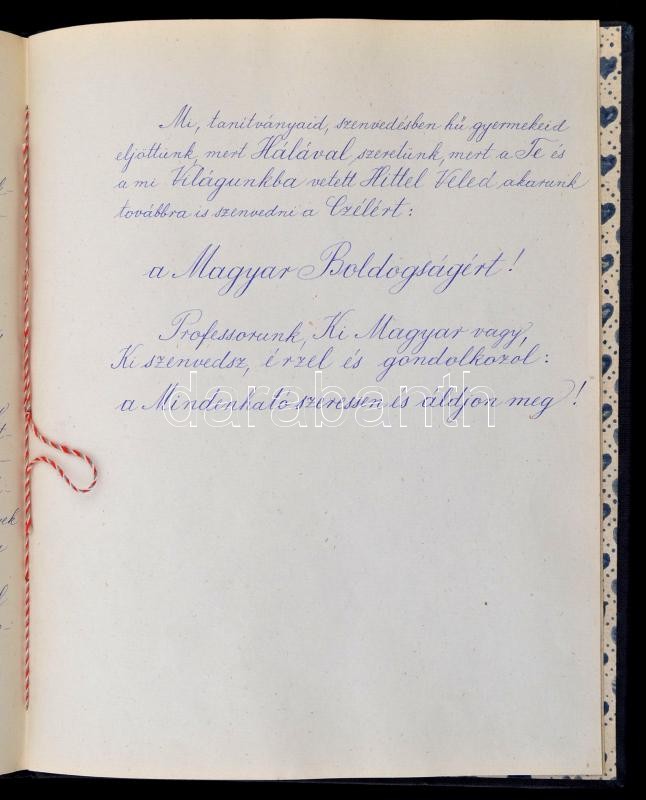 Mi, tanitványaid, szenvedésben hű gyermekeid
eljöttünk, mert Hálával szeretünk, mert a Te és
a mi Világunkba vetett Hittel Veled akarunk
továbbra is szenvedni a Czélért:
a Magyar Boldogságért!
Professorunk, Ki Magyar vagy,
Ki szenvedsz, érzel és gondolkozol:
a Mindenható szeressen és áldjon meg!
darabanth